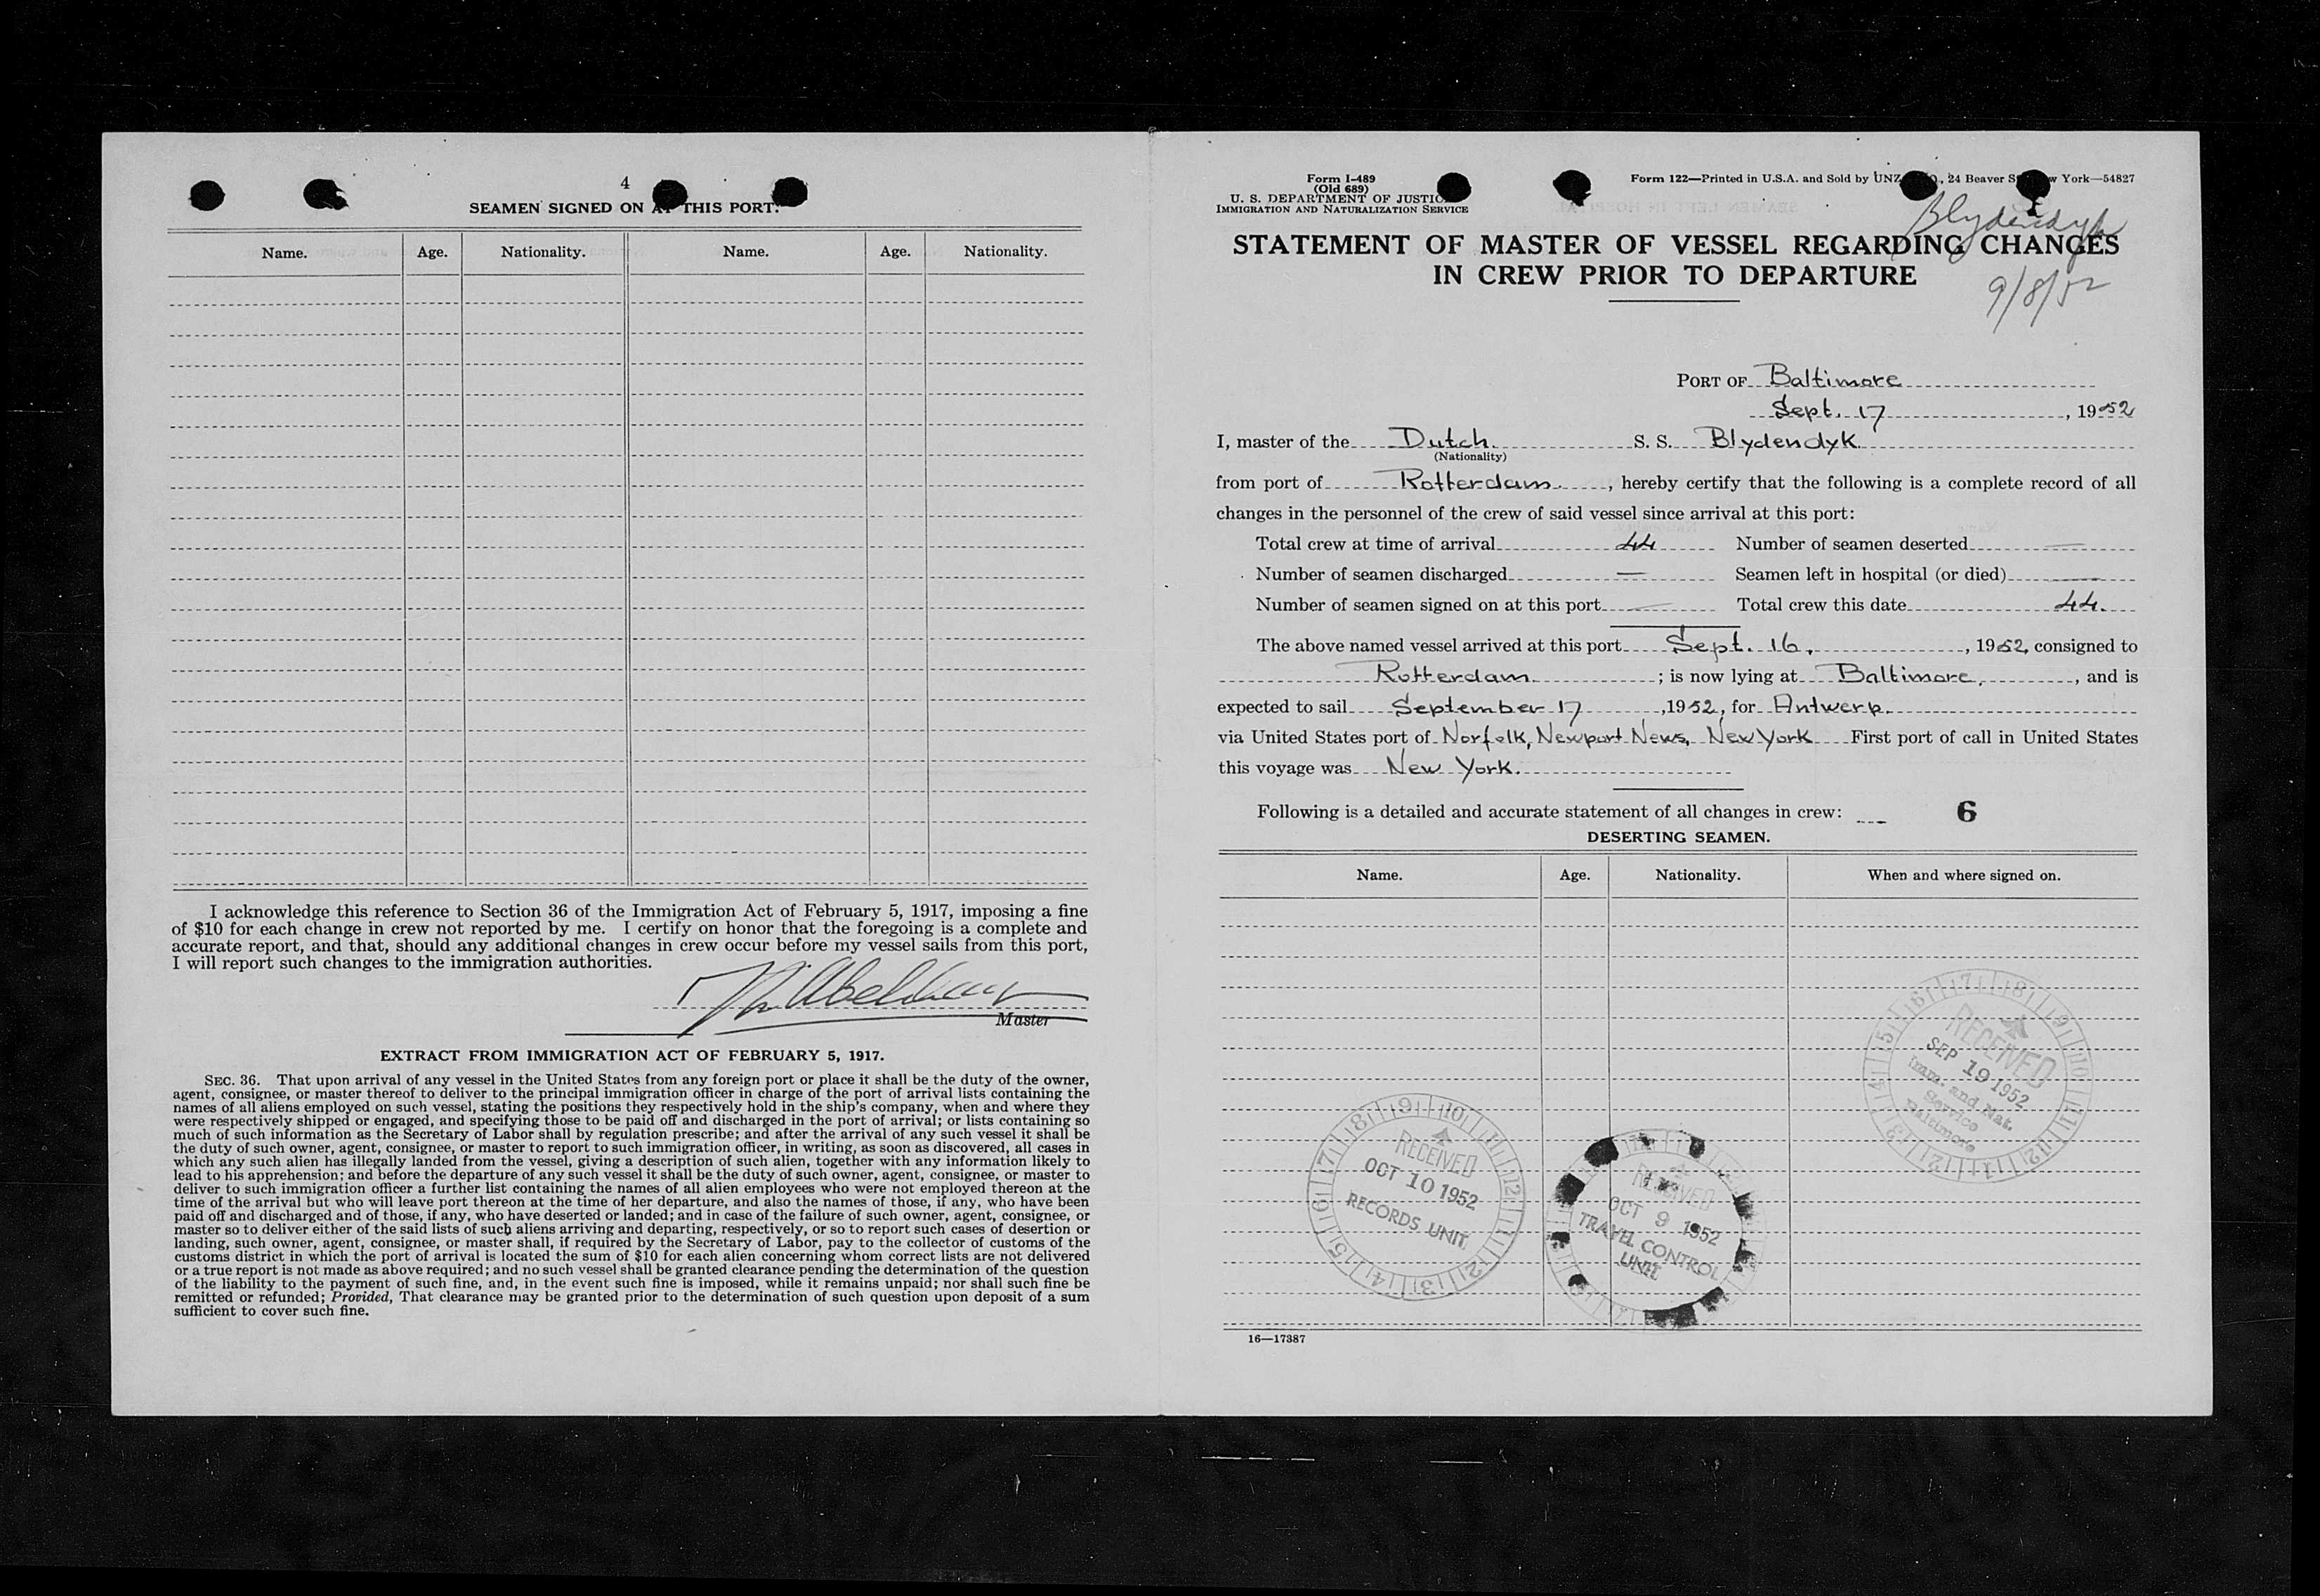 4
SEAMEN SIGNED ON AT THIS PORT.
Name. Age. Nationality. Name. Age. Nationality.
I acknowledge this reference to Section 36 of the Immigration Act of February 5, 1917, imposing a fine
of $10 for each change in crew not reported by me. I certify on honor that the foregoing is a complete and
accurate report, and that, should any additional changes in crew occur before my vessel sails from this port,
I will report such changes to the immigration authorities.
Master
EXTRACT FROM IMMIGRATION ACT OF FEBRUARY 5, 1917.
SEC. 36. That upon arrival of any vessel in the United States from any foreign port or place it shall be the duty of the owner,
agent, consignee, or master thereof to deliver to the principal immigration officer in charge of the port of arrival lists containing the
names of all aliens employed on such vessel, stating the positions they respectively hold in the ship's company, when and where they
were respectively shipped or engaged, and specifying those to be paid off and discharged in the port of arrival; or lists containing so
much of such information as the Secretary of Labor shall by regulation prescribe; and after the arrival of any such vessel it shall be
the duty of such owner, agent, consignee, or master to report to such immigration officer, in writing, as soon as discovered, all cases in
which any such alien has illegally landed from the vessel, giving a description of such alien, together with any information likely to
lead to his apprehension; and before the departure of any such vessel it shall be the duty of such owner, agent, consignee, or master to
deliver to such immigration officer a further list containing the names of all alien employees who were not employed thereon at the
time of the arrival but who will leave port thereon at the time of her departure, and also the names of those, if any, who have been
paid off and discharged and of those, if any, who have deserted or landed; and in case of the failure of such owner, agent, consignee, or
master so to deliver either of the said lists of such aliens arriving and departing, respectively, or so to report such cases of desertion or
landing, such owner, agent, consignee, or master shall, if required by the Secretary of Labor, pay to the collector of customs of the
customs district in which the port of arrival is located the sum of $10 for each alien concerning whom correct lists are not delivered
or a true report is not made as above required; and no such vessel shall be granted clearance pending the determination of the question
of the liability to the payment of such fine, and, in the event such fine is imposed, while it remains unpaid; nor shall such fine be
remitted or refunded; Provided, That clearance may be granted prior to the determination of such question upon deposit of a sum
sufficient to cover such fine.
Form I-489
(Old 689)
U. S. DEPARTMENT OF JUSTICE
IMMIGRATION AND NATURALIZATION SERVICE
Form 122—Printed in U.S.A. and Sold by UNZ , 24 Beaver York—54827
Blydendyk
STATEMENT OF MASTER OF VESSEL REGARDING CHANGES
IN CREW PRIOR TO DEPARTURE
9/8/52
PORT OF Baltimore
Sept. 17, 1952
I, master of the Dutch S. S. Blydendyk
(Nationality)
from port of Rotterdam, hereby certify that the following is a complete record of all
changes in the personnel of the crew of said vessel since arrival at this port:
Total crew at time of arrival 44 Number of seamen deserted —
Number of seamen discharged — Seamen left in hospital (or died) —
Number of seamen signed on at this port — Total crew this date 44.
The above named vessel arrived at this port Sept. 16, 1952, consigned to
Rotterdam; is now lying at Baltimore, and is
expected to sail September 17, 1952, for Antwerp.
via United States port of Norfolk, Newport News, New York First port of call in United States
this voyage was New York.
Following is a detailed and accurate statement of all changes in crew: 6
DESERTING SEAMEN.
Name. Age. Nationality. When and where signed on.
RECEIVED
SEP 19 1952
Imm. and Nat.
Service
Baltimore
RECEIVED
OCT 10 1952
RECORDS UNIT
RECEIVED
OCT 9 1952
TRAVEL CONTROL
UNIT
16—17387